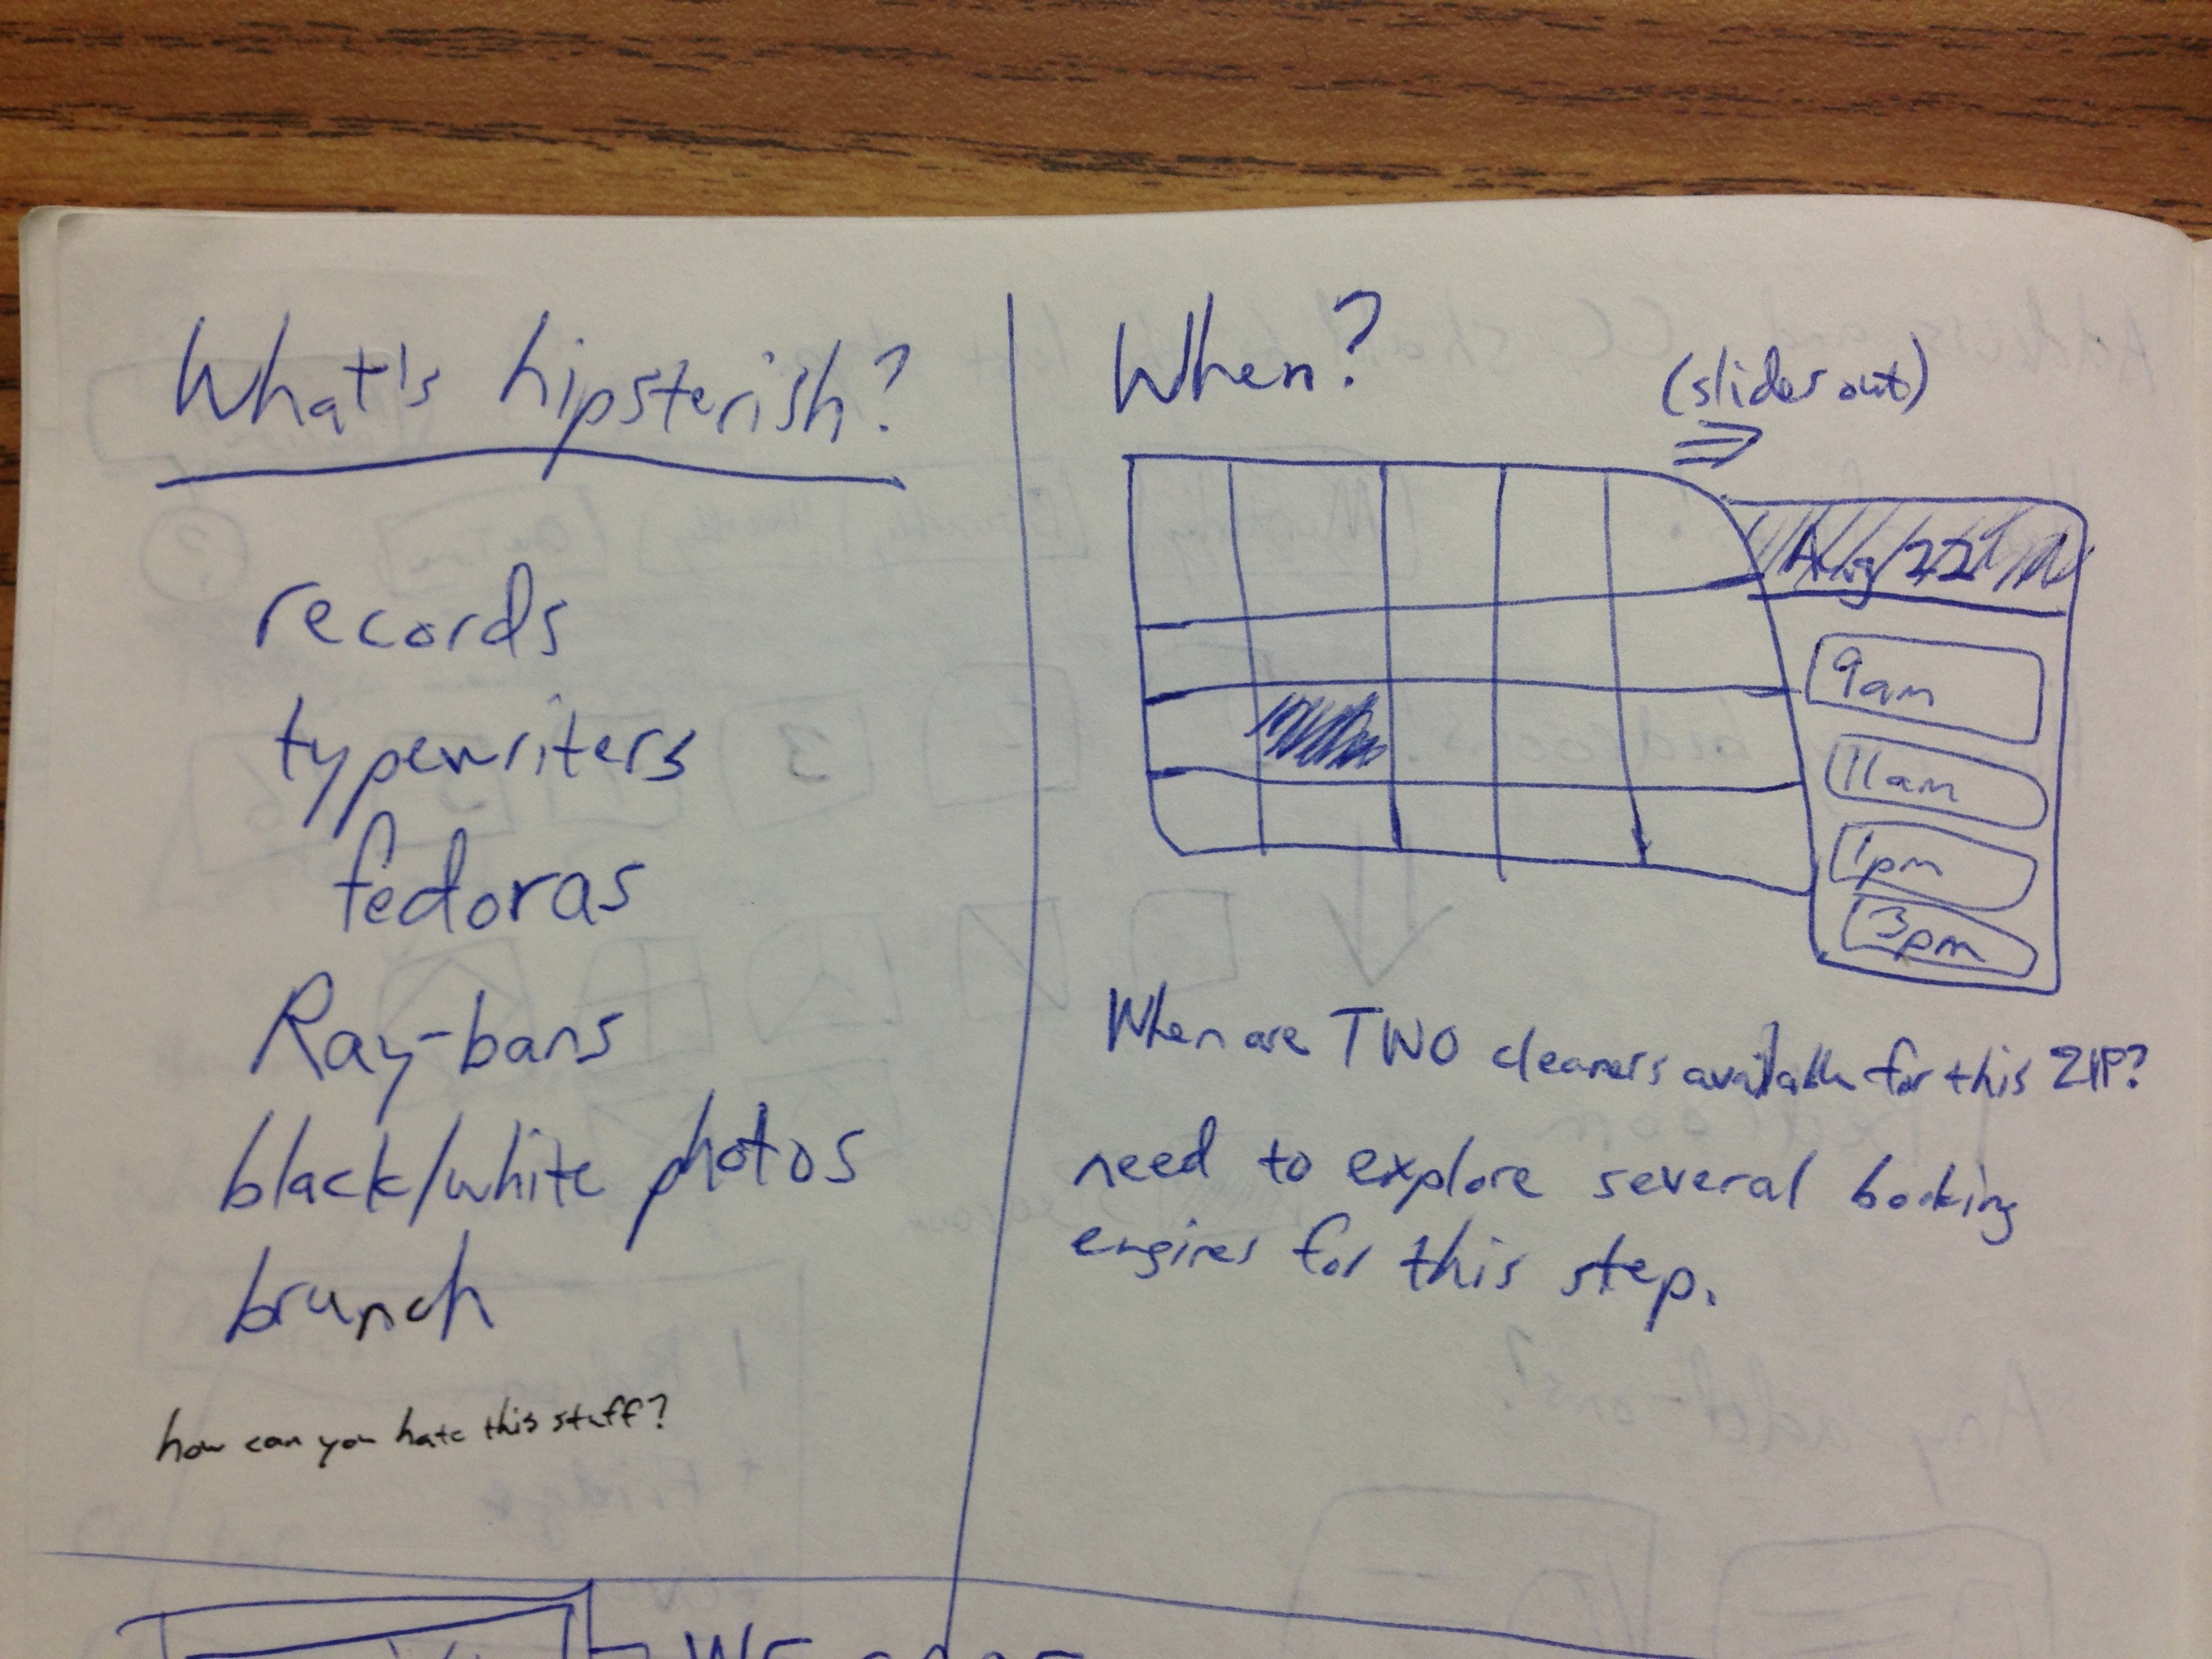 What's hipsterish?
records
typewriters
fedoras
Ray-bans
black/white photos
brunch
how can you hate this stuff?
When?
(slides out)
Aug 22
9am
11am
1pm
3pm
When are TWO cleaners available for this ZIP?
need to explore several booking
engines for this step.